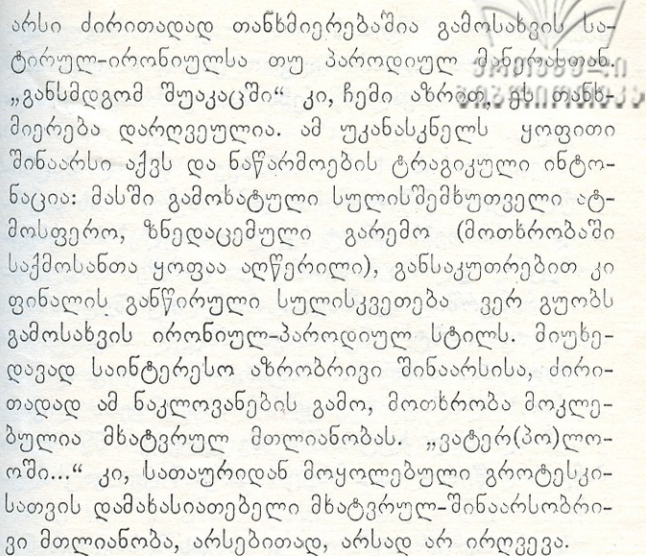 არსი ძირითადად თანხმიერებაშია გამოსახვის სა-
ტირულ-ირონიულსა თუ პაროდიულ მანერასთან.
„განსმდგომ შუაკაცში“ კი, ჩემი აზრით, ეს თანხ-
მიერება დარღვეულია. ამ უკანასკნელს ყოფითი
შინაარსი აქვს და ნაწარმოების ტრაგიკული ინტო-
ნაცია: მასში გამოხატული სულისშემხუთველი ატ-
მოსფერო, ზნედაცემული გარემო (მოთხრობაში
საქმოსანთა ყოფაა აღწერილი), განსაკუთრებით კი
ფინალის განწირული სულისკვეთება ვერ გუობს
გამოსახვის ირონიულ-პაროდიულ სტილს. მიუხე-
დავად საინტერესო აზრობრივი შინაარსისა, ძირი-
თადად ამ ნაკლოვანების გამო, მოთხრობა მოკლე-
ბულია მხატვრულ მთლიანობას. „ვატერ(პო)ლო-
ოში...“ კი, სათაურიდან მოყოლებული გროტესკი-
სათვის დამახასიათებელი მხატვრულ-შინაარსობრი-
ვი მთლიანობა, არსებითად, არსად არ ირღვევა.